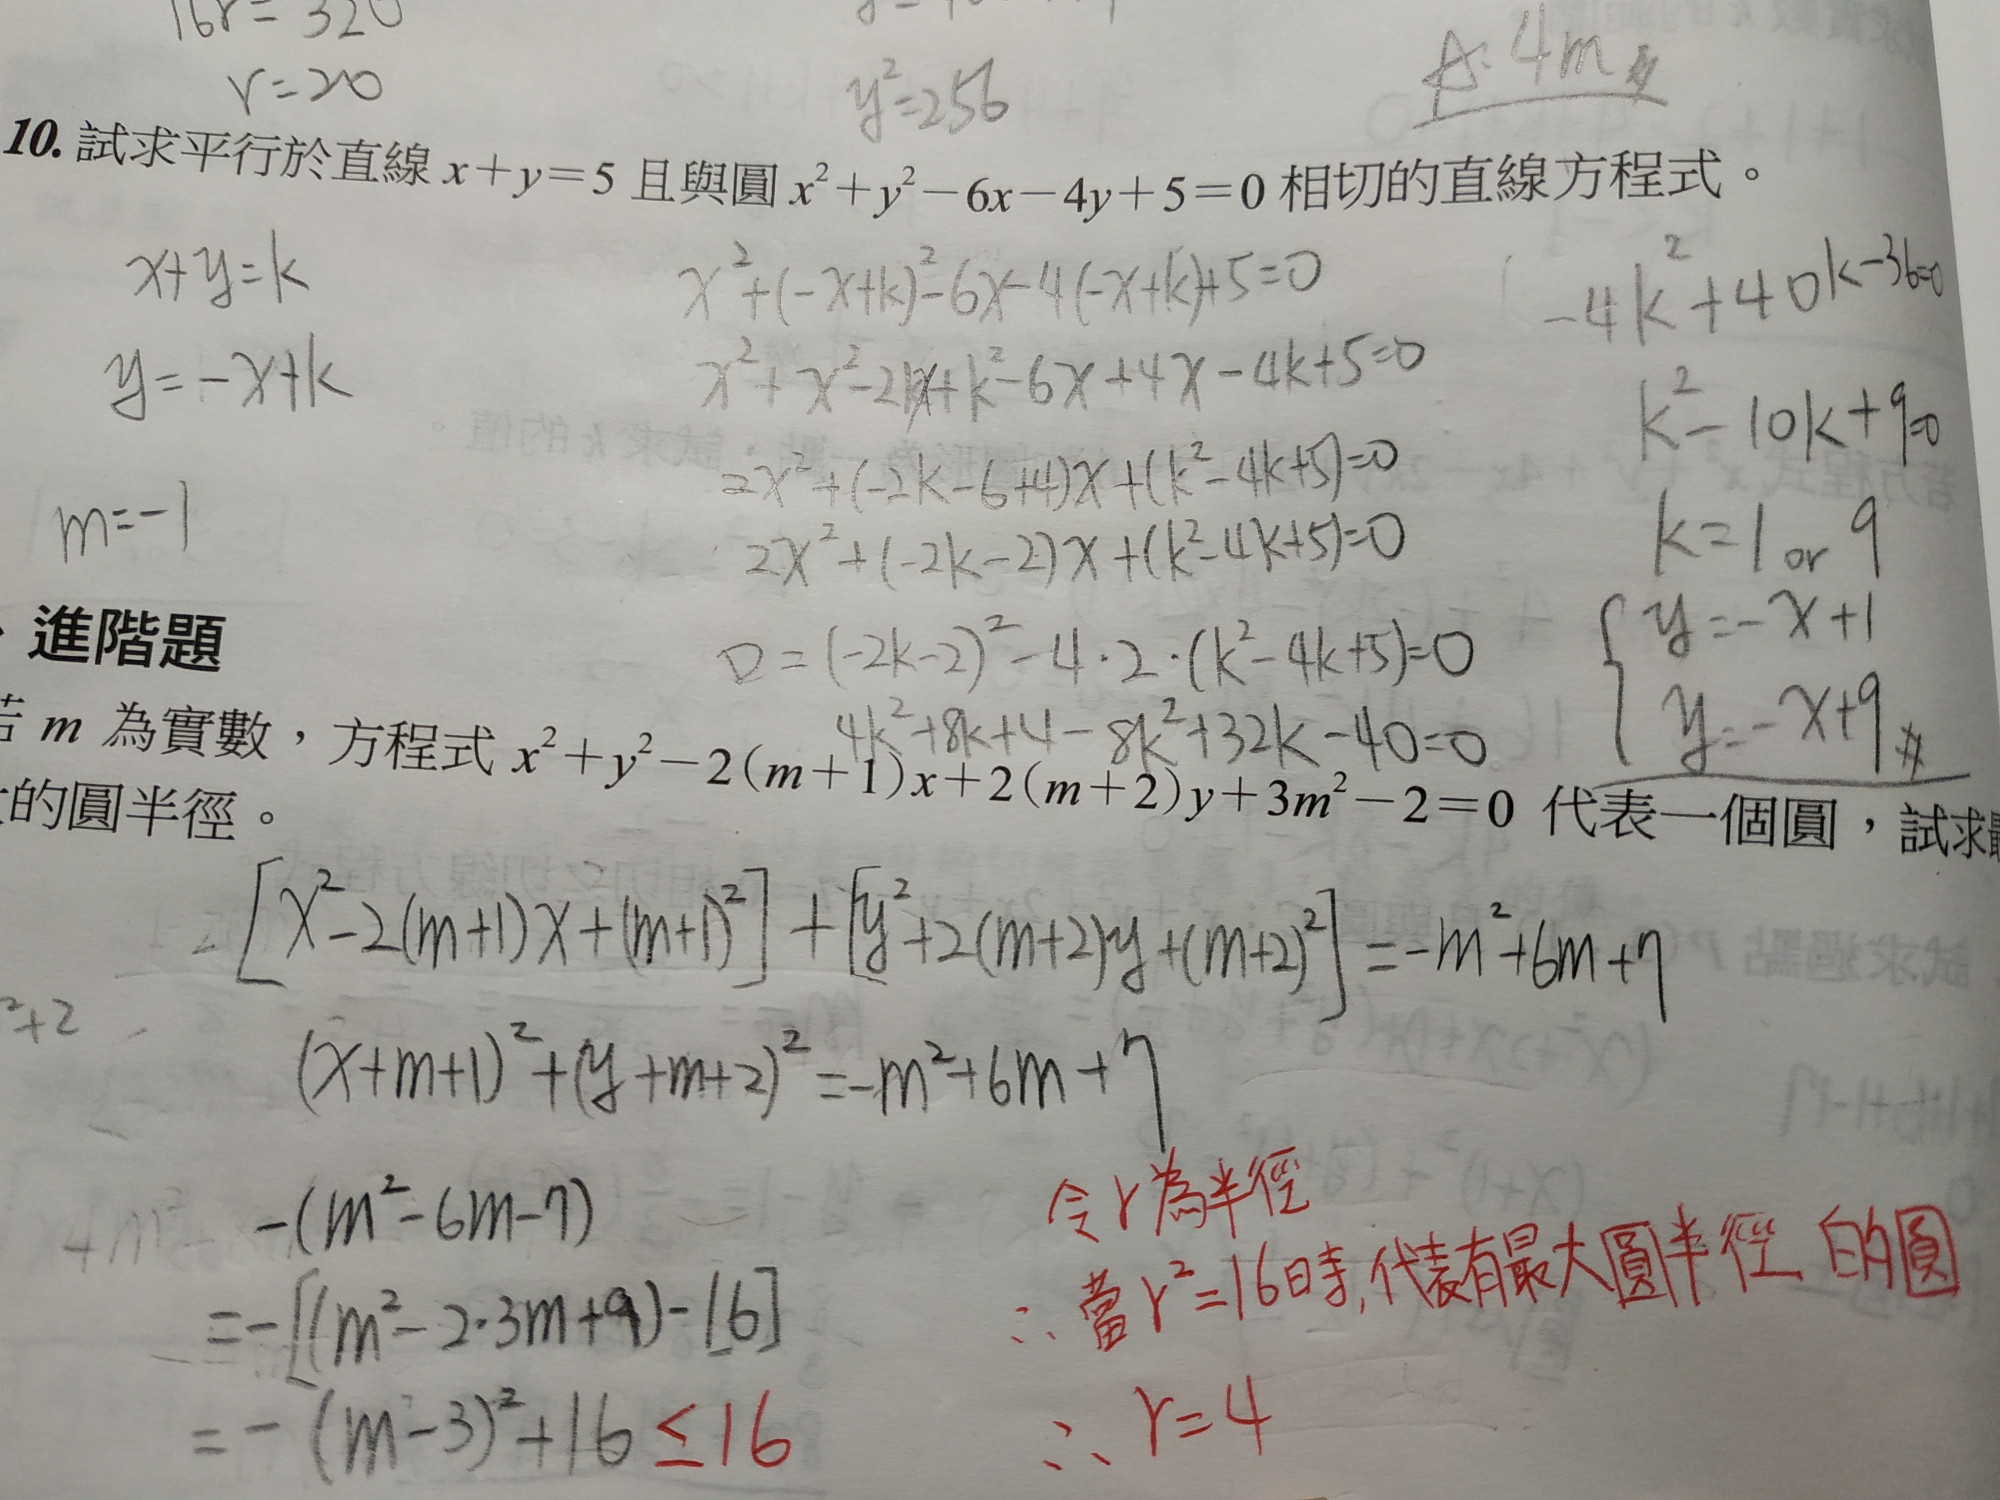 16r=320
r=20
y²=256
A: 4m
10. 試求平行於直線 x+y=5 且與圓 x²+y²-6x-4y+5=0 相切的直線方程式。
x+y=k
y=-x+k
m=-1
x²+(-x+k)²-6x-4(-x+k)+5=0
x²+x²-2kx+k²-6x+4x-4k+5=0
2x²+(-2k-6+4)x+(k²-4k+5)=0
2x²+(-2k-2)x+(k²-4k+5)=0
D=(-2k-2)²-4·2·(k²-4k+5)=0
4k²+8k+4-8k²+32k-40=0
-4k²+40k-36=0
k²-10k+9=0
k=1 or 9
y=-x+1
y=-x+9
進階題
若 m 為實數,方程式 x²+y²-2(m+1)x+2(m+2)y+3m²-2=0 代表一個圓,試求
的圓半徑。
[x²-2(m+1)x+(m+1)²]+[y²+2(m+2)y+(m+2)²]=-m²+6m+7
²+2
(x+m+1)²+(y+m+2)²=-m²+6m+7
-(m²-6m-7)
=-[(m²-2·3m+9)-16]
=-(m-3)²+16≤16
令r為半徑
∴當r²=16時,代表有最大圓半徑的圓
∴r=4